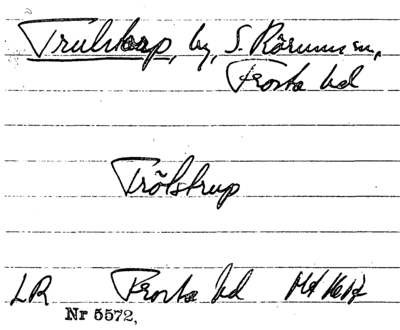 Trulstorp, by, S. Rörum sn,
Frosta hd
Trölstrup
LR Frosta hd
Nr 5572,